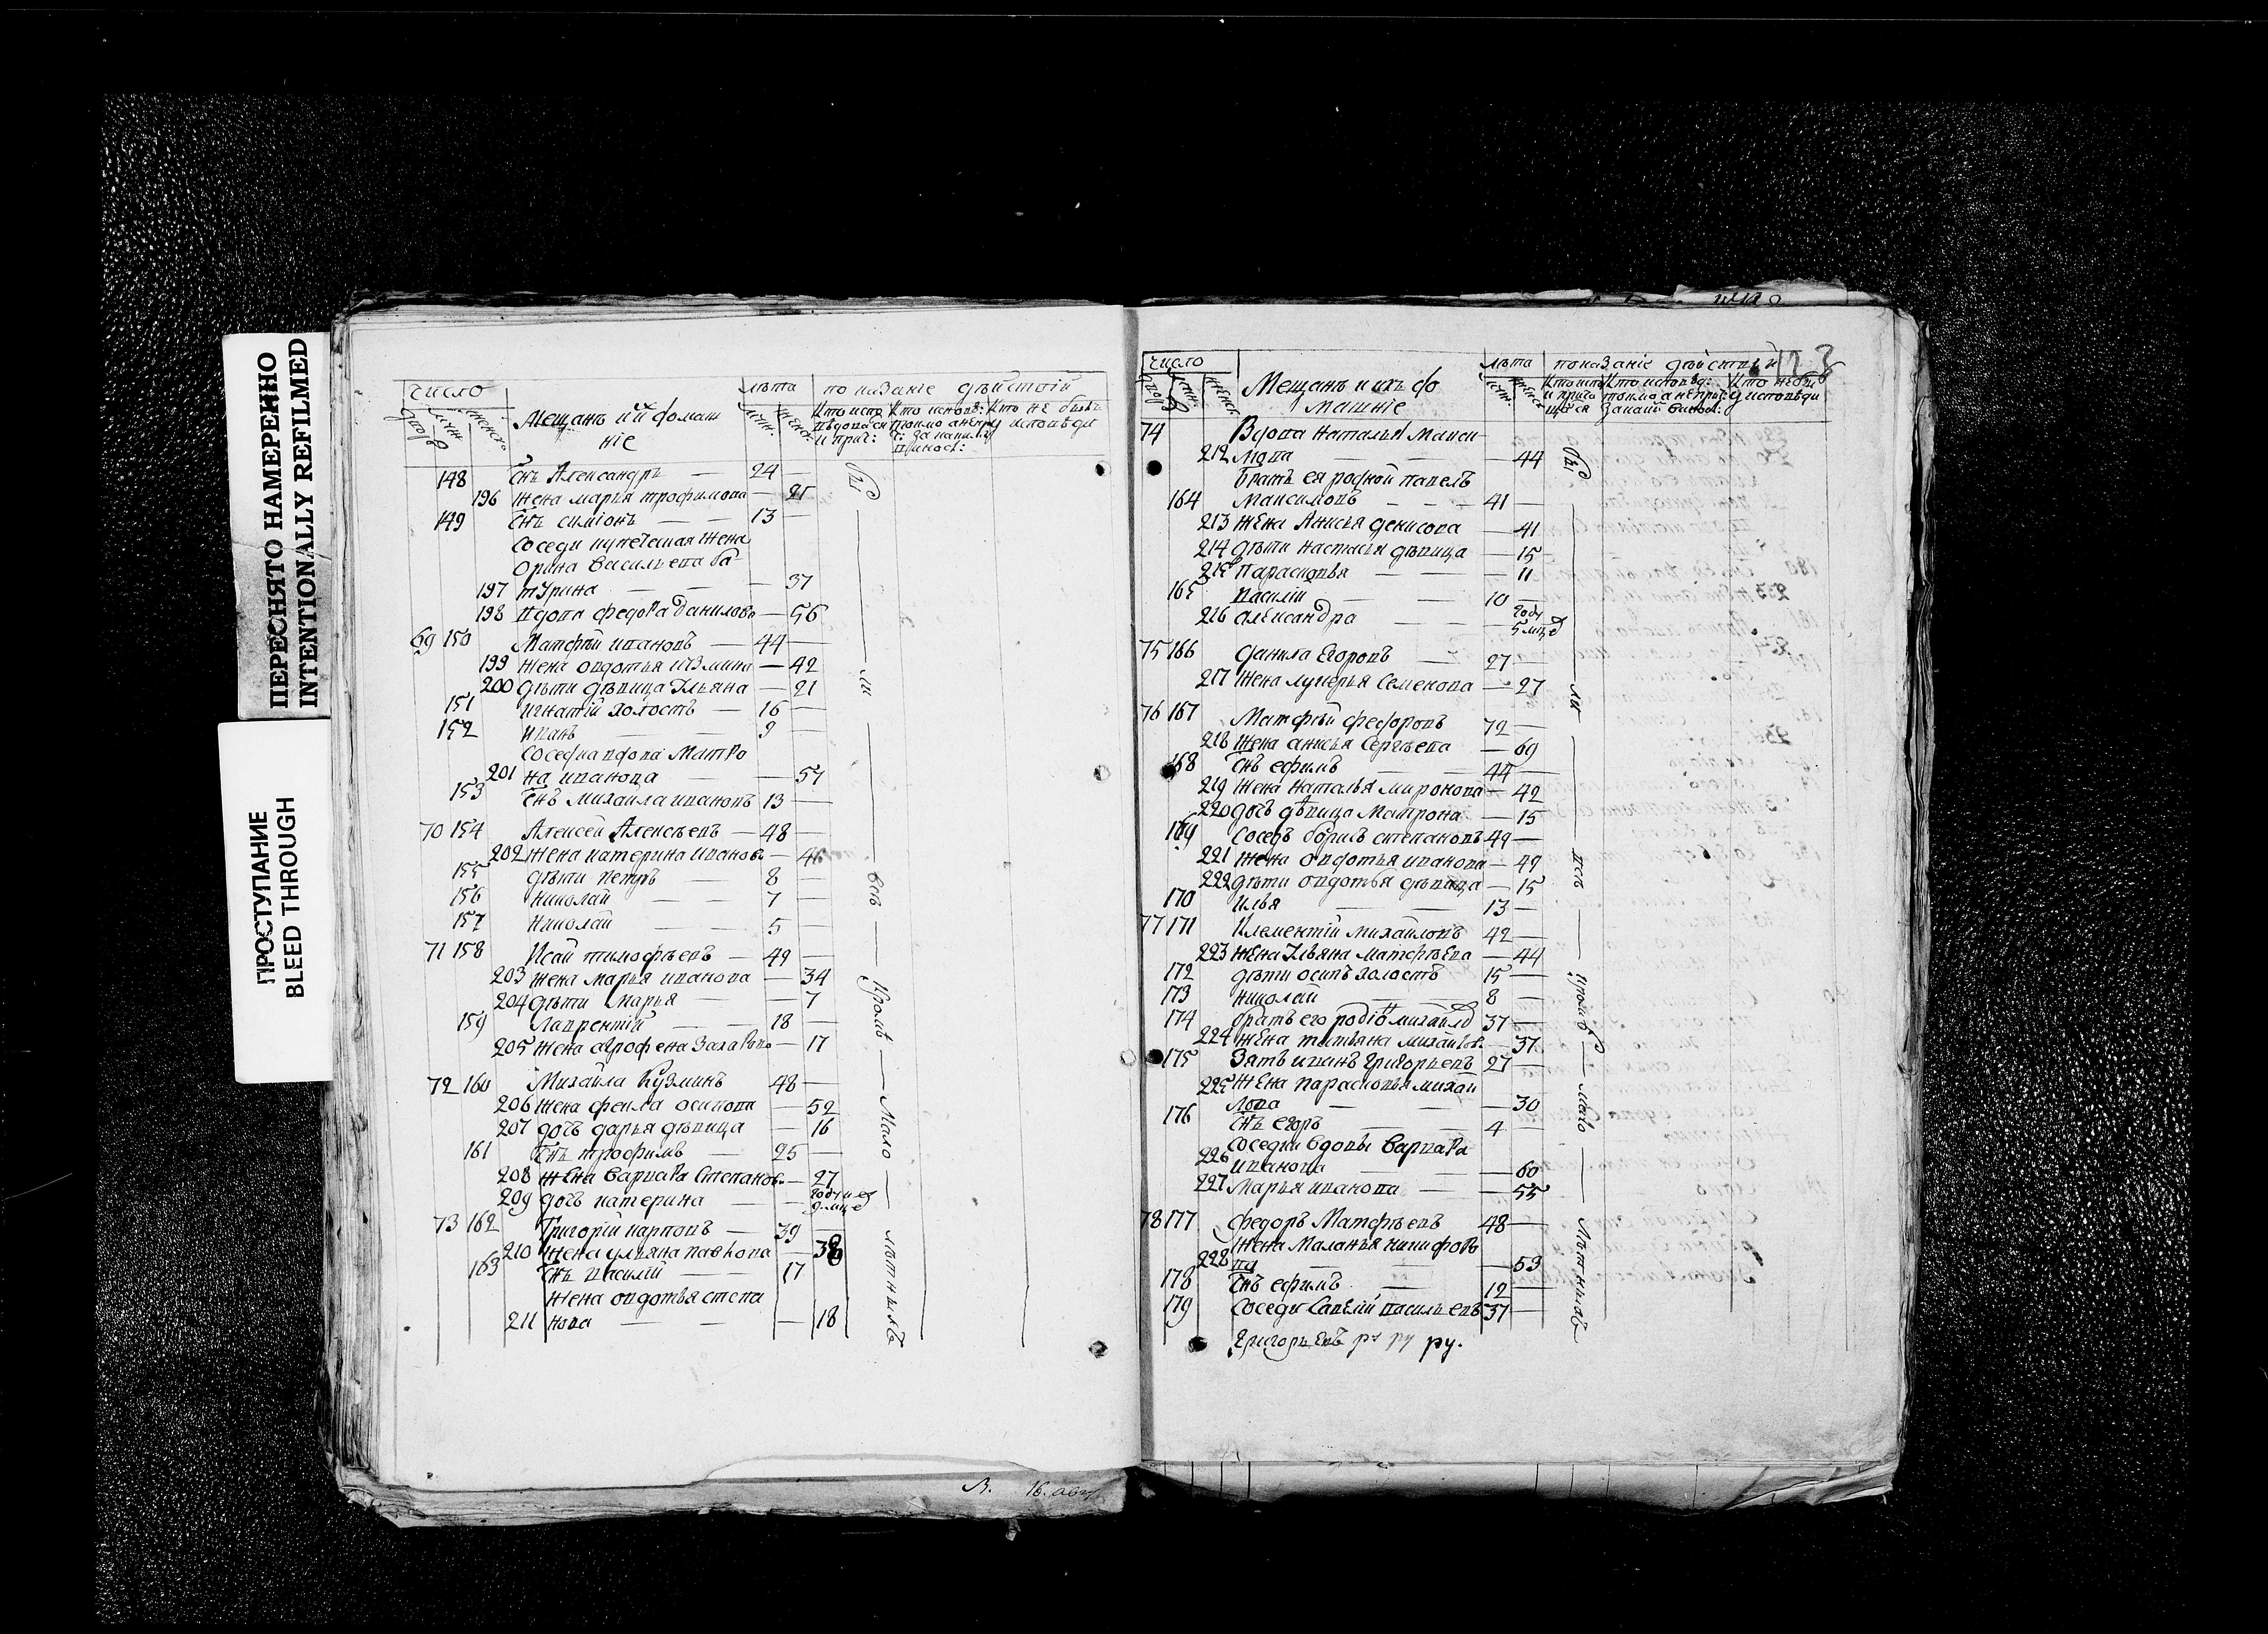 ПЕРЕСНЯТО НАМЕРЕННО
INTENTIONALLY REFILMED
ПРОСТУПАНИЕ
BLEED THROUGH
число
лѣта
показаніе дѣйствій
Мещанъ и их домаш
ніе
148 Снъ Александръ — 24 —
196 жена марья трофимова —
149 Снъ симіонъ — — 13 —
Соседи купеческая жена
Орина Васильева ба-
197 турина — — 37
198 вдова федора данилова — 56
69 150 Матфѣй ивановъ — 44 —
199 жена овдотья кузмина — 42
200 дѣти дѣвица Ульяна — 21
151 игнатій холостъ — 16 —
152 иванъ — 9 —
соседка вдова Матро
201 на иванова — — 57
153 Снъ михаила ивановъ 13 —
70 154 Алексей Алексѣевъ — 48 —
202 жена катерина иванова — 46
155 дѣти петръ — 8 —
156 николай — — 7 —
157 николай — — 5 —
71 158 Исай тимофѣевъ — 49 —
203 жена марья иванова — 34
204 дѣти марья — — 7
159 лаврентій — — 18 —
205 жена агрофена Захарова — 17
72 160 Михаила Кузминъ 48 —
206 жена фекла осипова — 52
207 дочь дарья дѣвица — 16
161 Снъ трофимъ — 25 —
208 жена Варвара Степанов. — 27
209 дочь катерина —
73 162 Григорій карповъ — 39 —
210 жена ульяна павлова — 38
163 Снъ василій — — 17
жена овдотья степа
211 нова — — — 18
бы — ли — всѣ — Кромѣ — Мало — лѣтныхъ
В. 16. авг
число
лѣта
показаніе дѣйствій
Мещанъ и ихъ до
машніе
74 Вдова Наталья Макси
212 мова — — — 44
братъ ея родной павелъ
164 Максимовъ — — 41 —
213 жена Анисья денисова — 41
214 дѣти настасья дѣвица — 15
215 Парасковья — — — 11
165 василій — — 10 —
216 александра — —
75 166 данила Егоровъ — 27 —
217 жена лукерья Семенова — 27
76 167 Матфѣй федоровъ 72 —
218 жена анисья Сергѣева — 69
168 Снъ ефимъ — — 44 —
219 жена Наталья миронова — 42
220 дочь дѣвица Матрона — 15
169 соседъ борисъ степановъ 49 —
221 жена овдотья иванова — 49
222 дѣти овдотья дѣвица — 15
170 илья — — 13 —
77 171 Клементій михайловъ 42 —
223 жена Ульяна матфѣева — 44
172 дѣти осипъ холостъ 15 —
173 николай — — 8 —
174 братъ его родіонъ михайло 37 —
224 жена татьяна михайлов. — 37
175 Зять иванъ Григорьевъ 27 —
225 жена парасковья михай
лова — — 30
176 Снъ егоръ — 4 —
соседки вдовы Варвара
226 иванова — — 60
227 Марья иванова — — 55
78 177 федоръ Матфѣевъ 48 —
жена Маланья никифоро
228 ва — — — 53
178 Снъ ефимъ — 12 —
179 соседи Савелій васильевъ 37 —
Григорьевъ ру ру ру.
бы — ли — всѣ — Кромѣ — мало — Лѣтныхъ